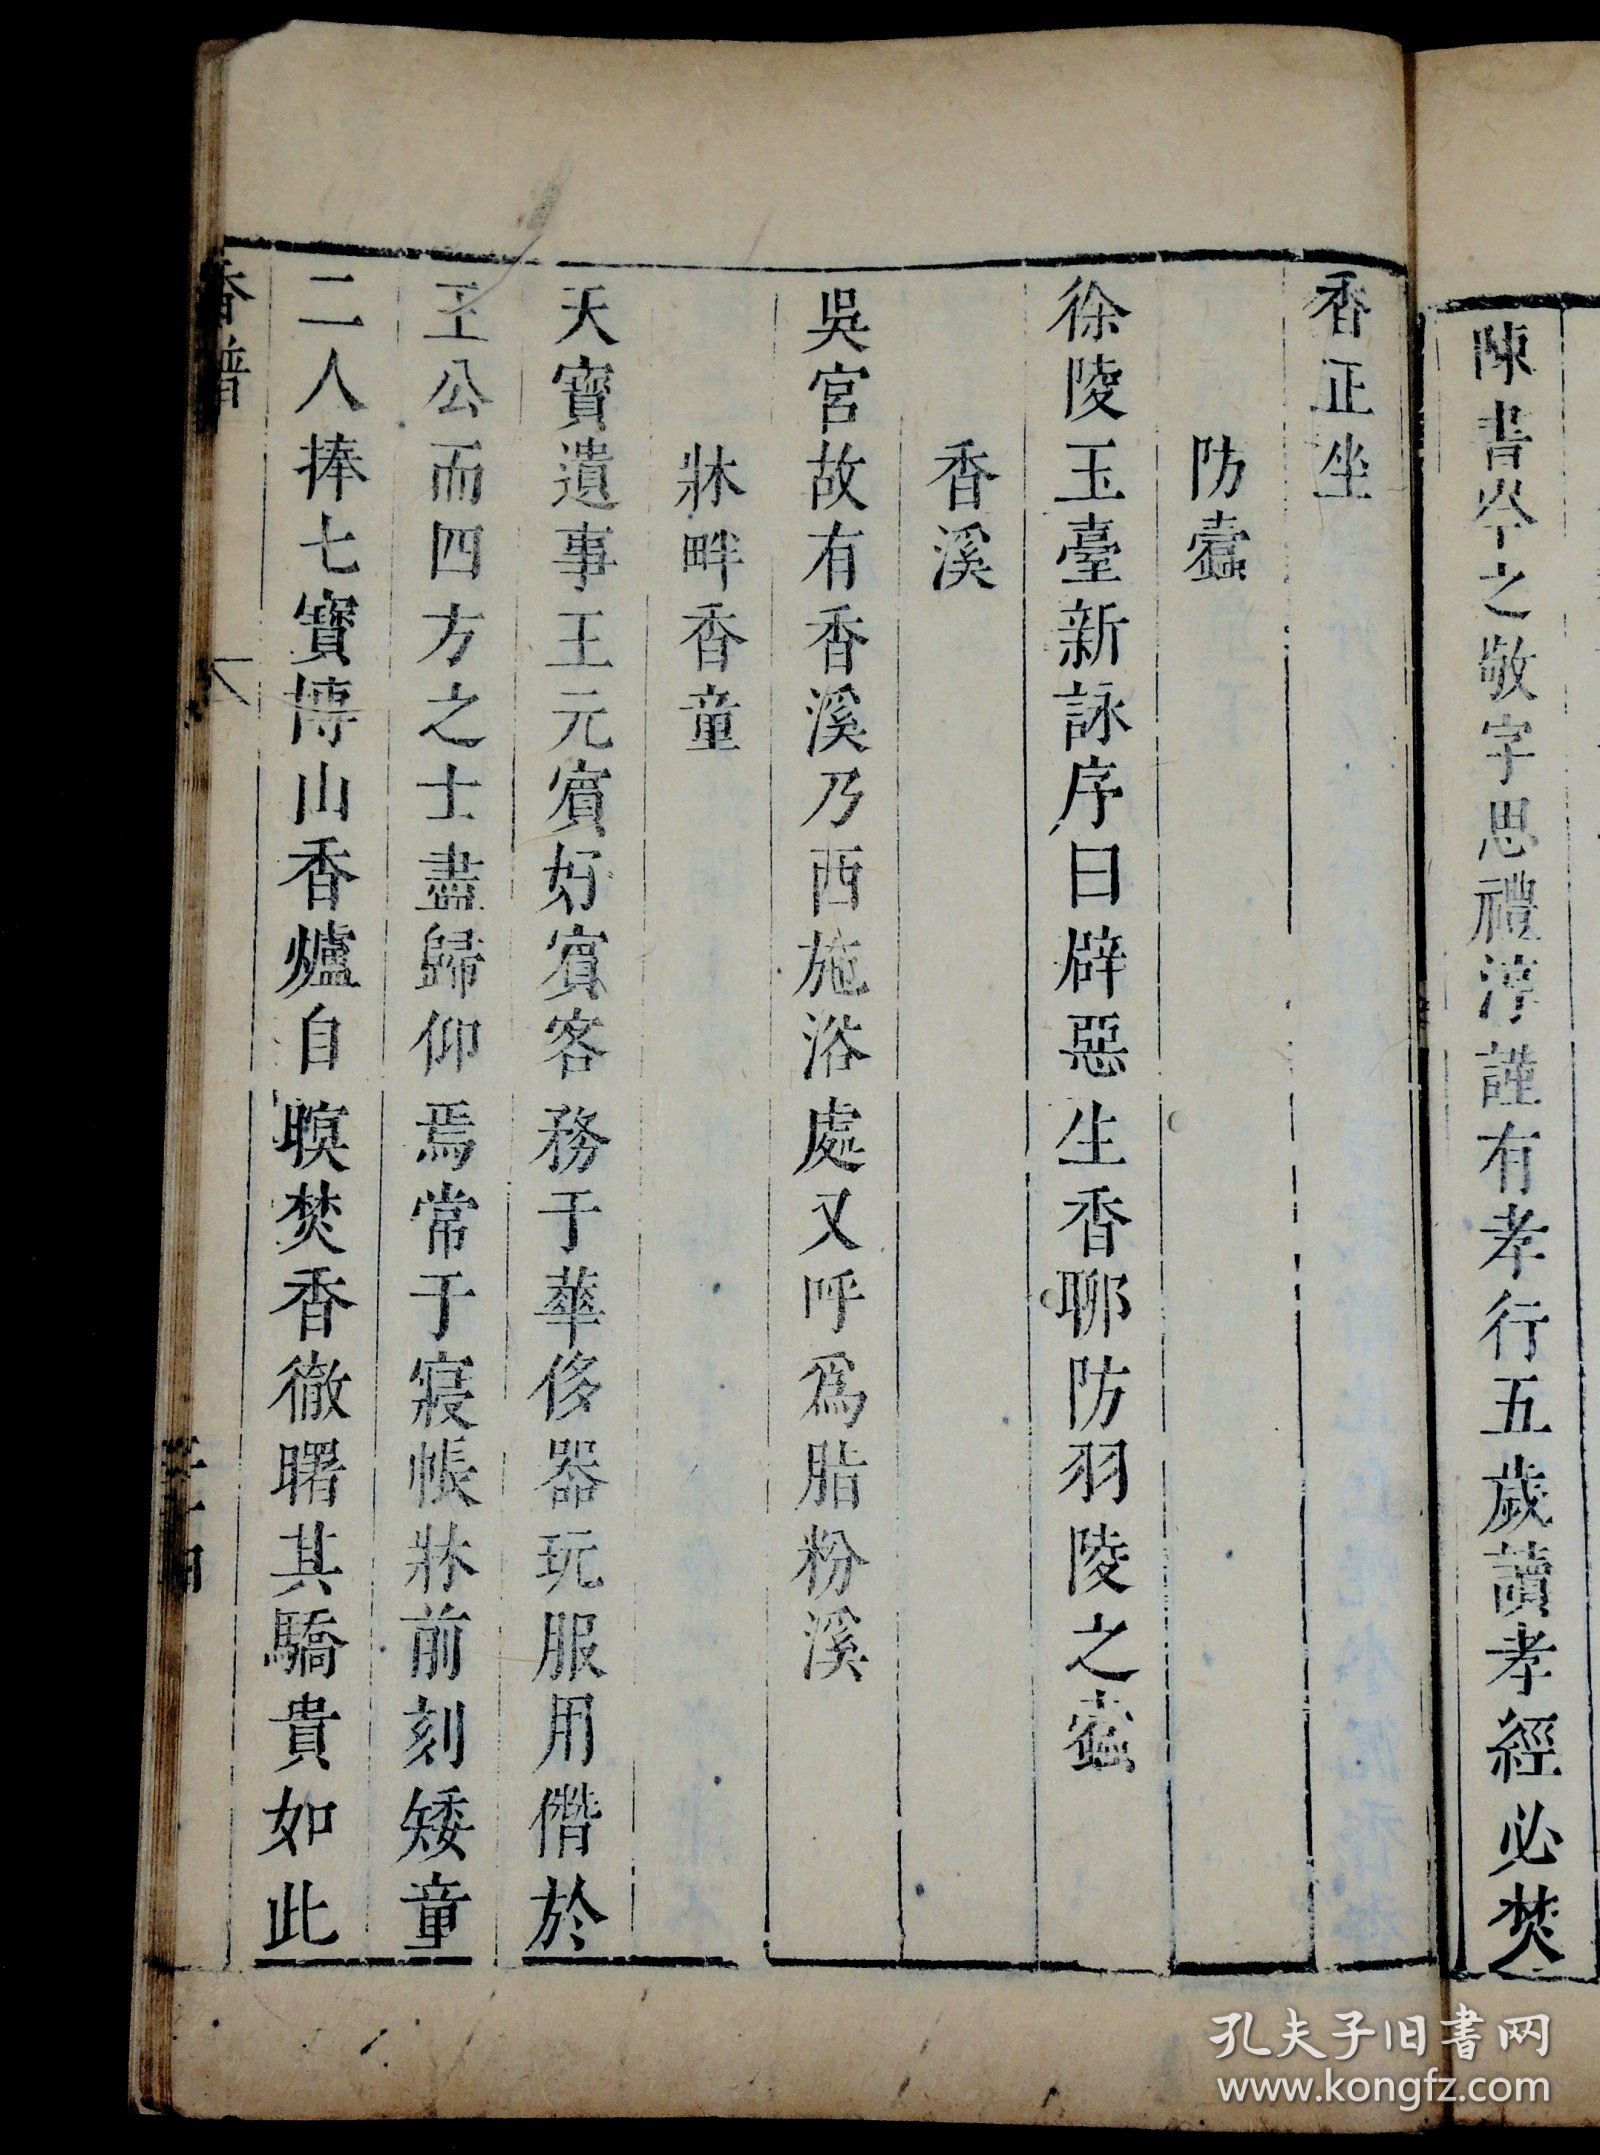 陳書岑之敬字思禮淳謹有孝行五歲讀孝經必焚
香正坐
防蠹
徐陵玉臺新詠序曰辟惡生香聊防羽陵之蠹
香溪
吳宮故有香溪乃西施浴處又呼爲脂粉溪
牀畔香童
天寶遺事王元寶好賓客務于華侈器玩服用僭於
王公而四方之士盡歸仰焉常于寢帳牀前刻矮童
二人捧七寶博山香爐自暝焚香徹曙其驕貴如此
香譜
孔夫子旧书网
www.kongfz.com